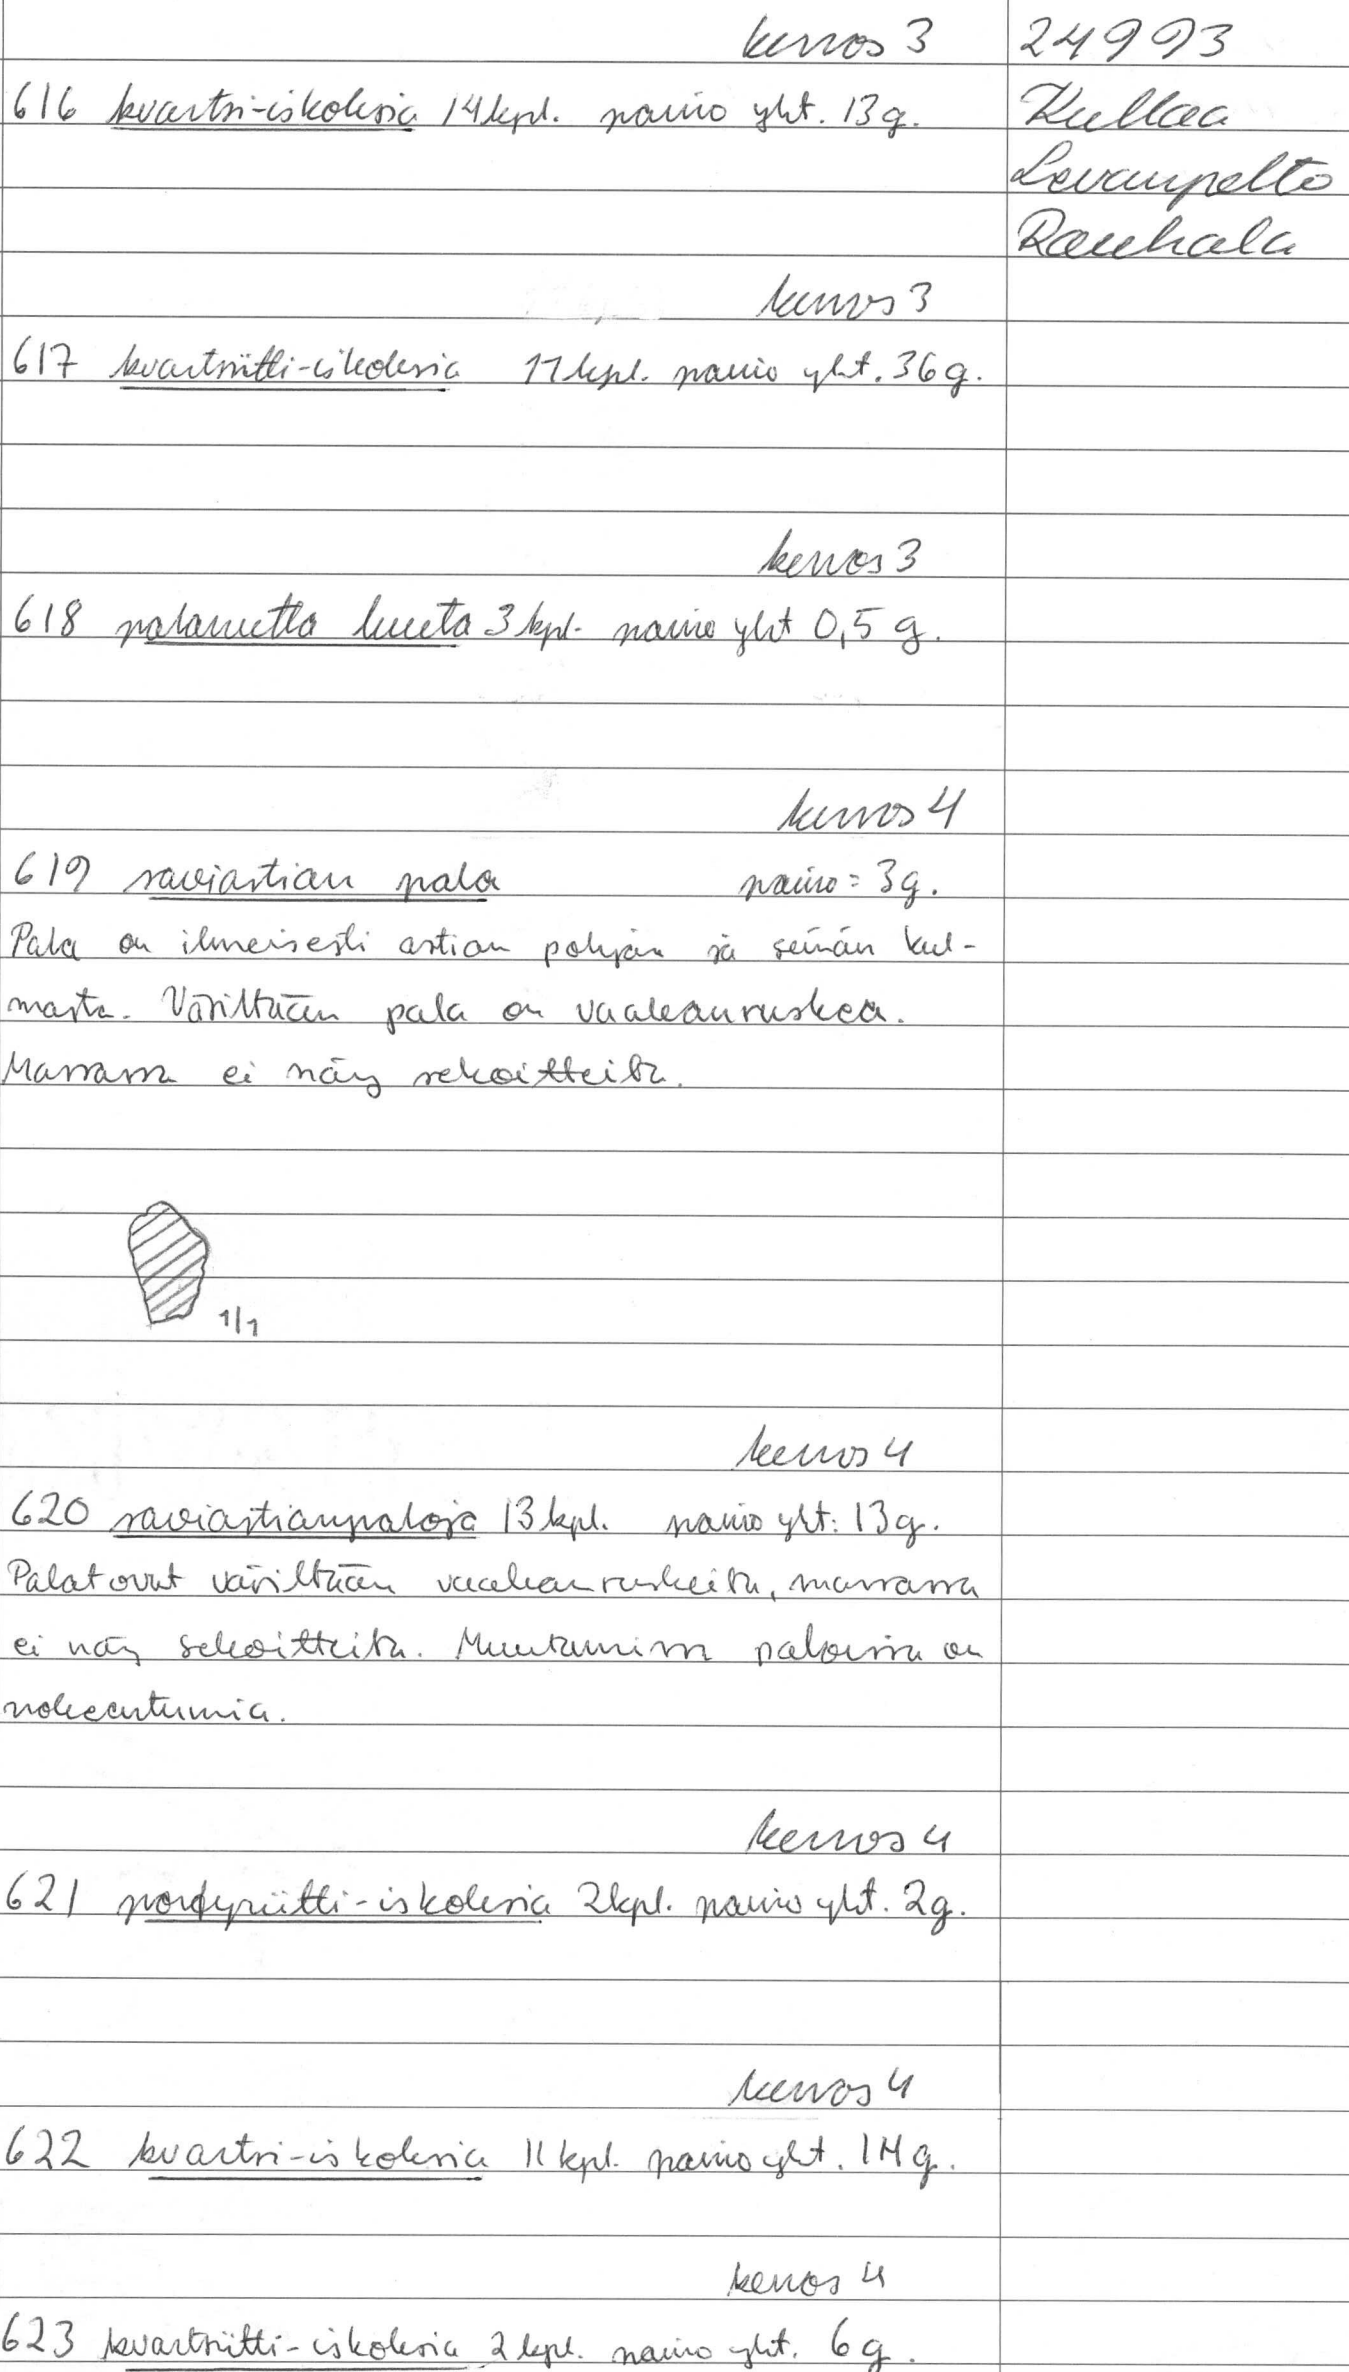 kerros 3
24993
616 kvartsi-iskoksia 14 kpl. paino yht. 13 g.
Kullaa
Levanpelto
Rauhala
kerros 3
617 kvartsiitti-iskoksia 11 kpl. paino yht. 36 g.
kerros 3
618 palanutta luuta 3 kpl. paino yht 0,5 g.
kerros 4
619 saviastian pala paino = 3g.
Pala on ilmeisesti astian pohjan ja seinän kul-
masta. Väriltään pala on vaaleanruskea.
Massassa ei näy sekoitteita.
1/1
kerros 4
620 saviastianpaloja 13 kpl. paino yht: 13g.
Palat ovat väriltään vaaleanruskeita, massassa
ei näy sekoitteita. Muutamissa paloissa on
nokeentumia.
kerros 4
621 porfyriitti-iskoksia 2 kpl. paino yht. 2g.
kerros 4
622 kvartsi-iskoksia 11 kpl. paino yht. 14 g.
kerros 4
623 kvartsiitti-iskoksia 2 kpl. paino yht. 6 g.